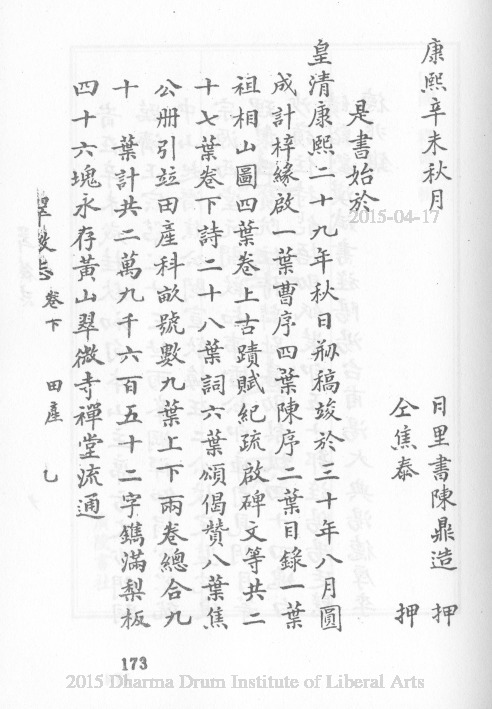 康熙辛未秋月
日里書陳鼎造 押
仝焦泰 押
是書始於
皇清康熙二十九年秋日剏稿竣於三十年八月圓
成計梓緣啟一葉曹序四葉陳序二葉目錄一葉
祖相山圖四葉卷上古蹟賦紀疏啟碑文等共二
十七葉卷下詩二十八葉詞六葉頌偈贊八葉焦
公册引竝田產科畝號數九葉上下兩卷總合九
十 葉計共二萬九千六百五十二字鐫滿梨板
四十六塊永存黃山翠微寺禪堂流通
卷下 田產
173
2015-04-17
2015 Dharma Drum Institute of Liberal Arts